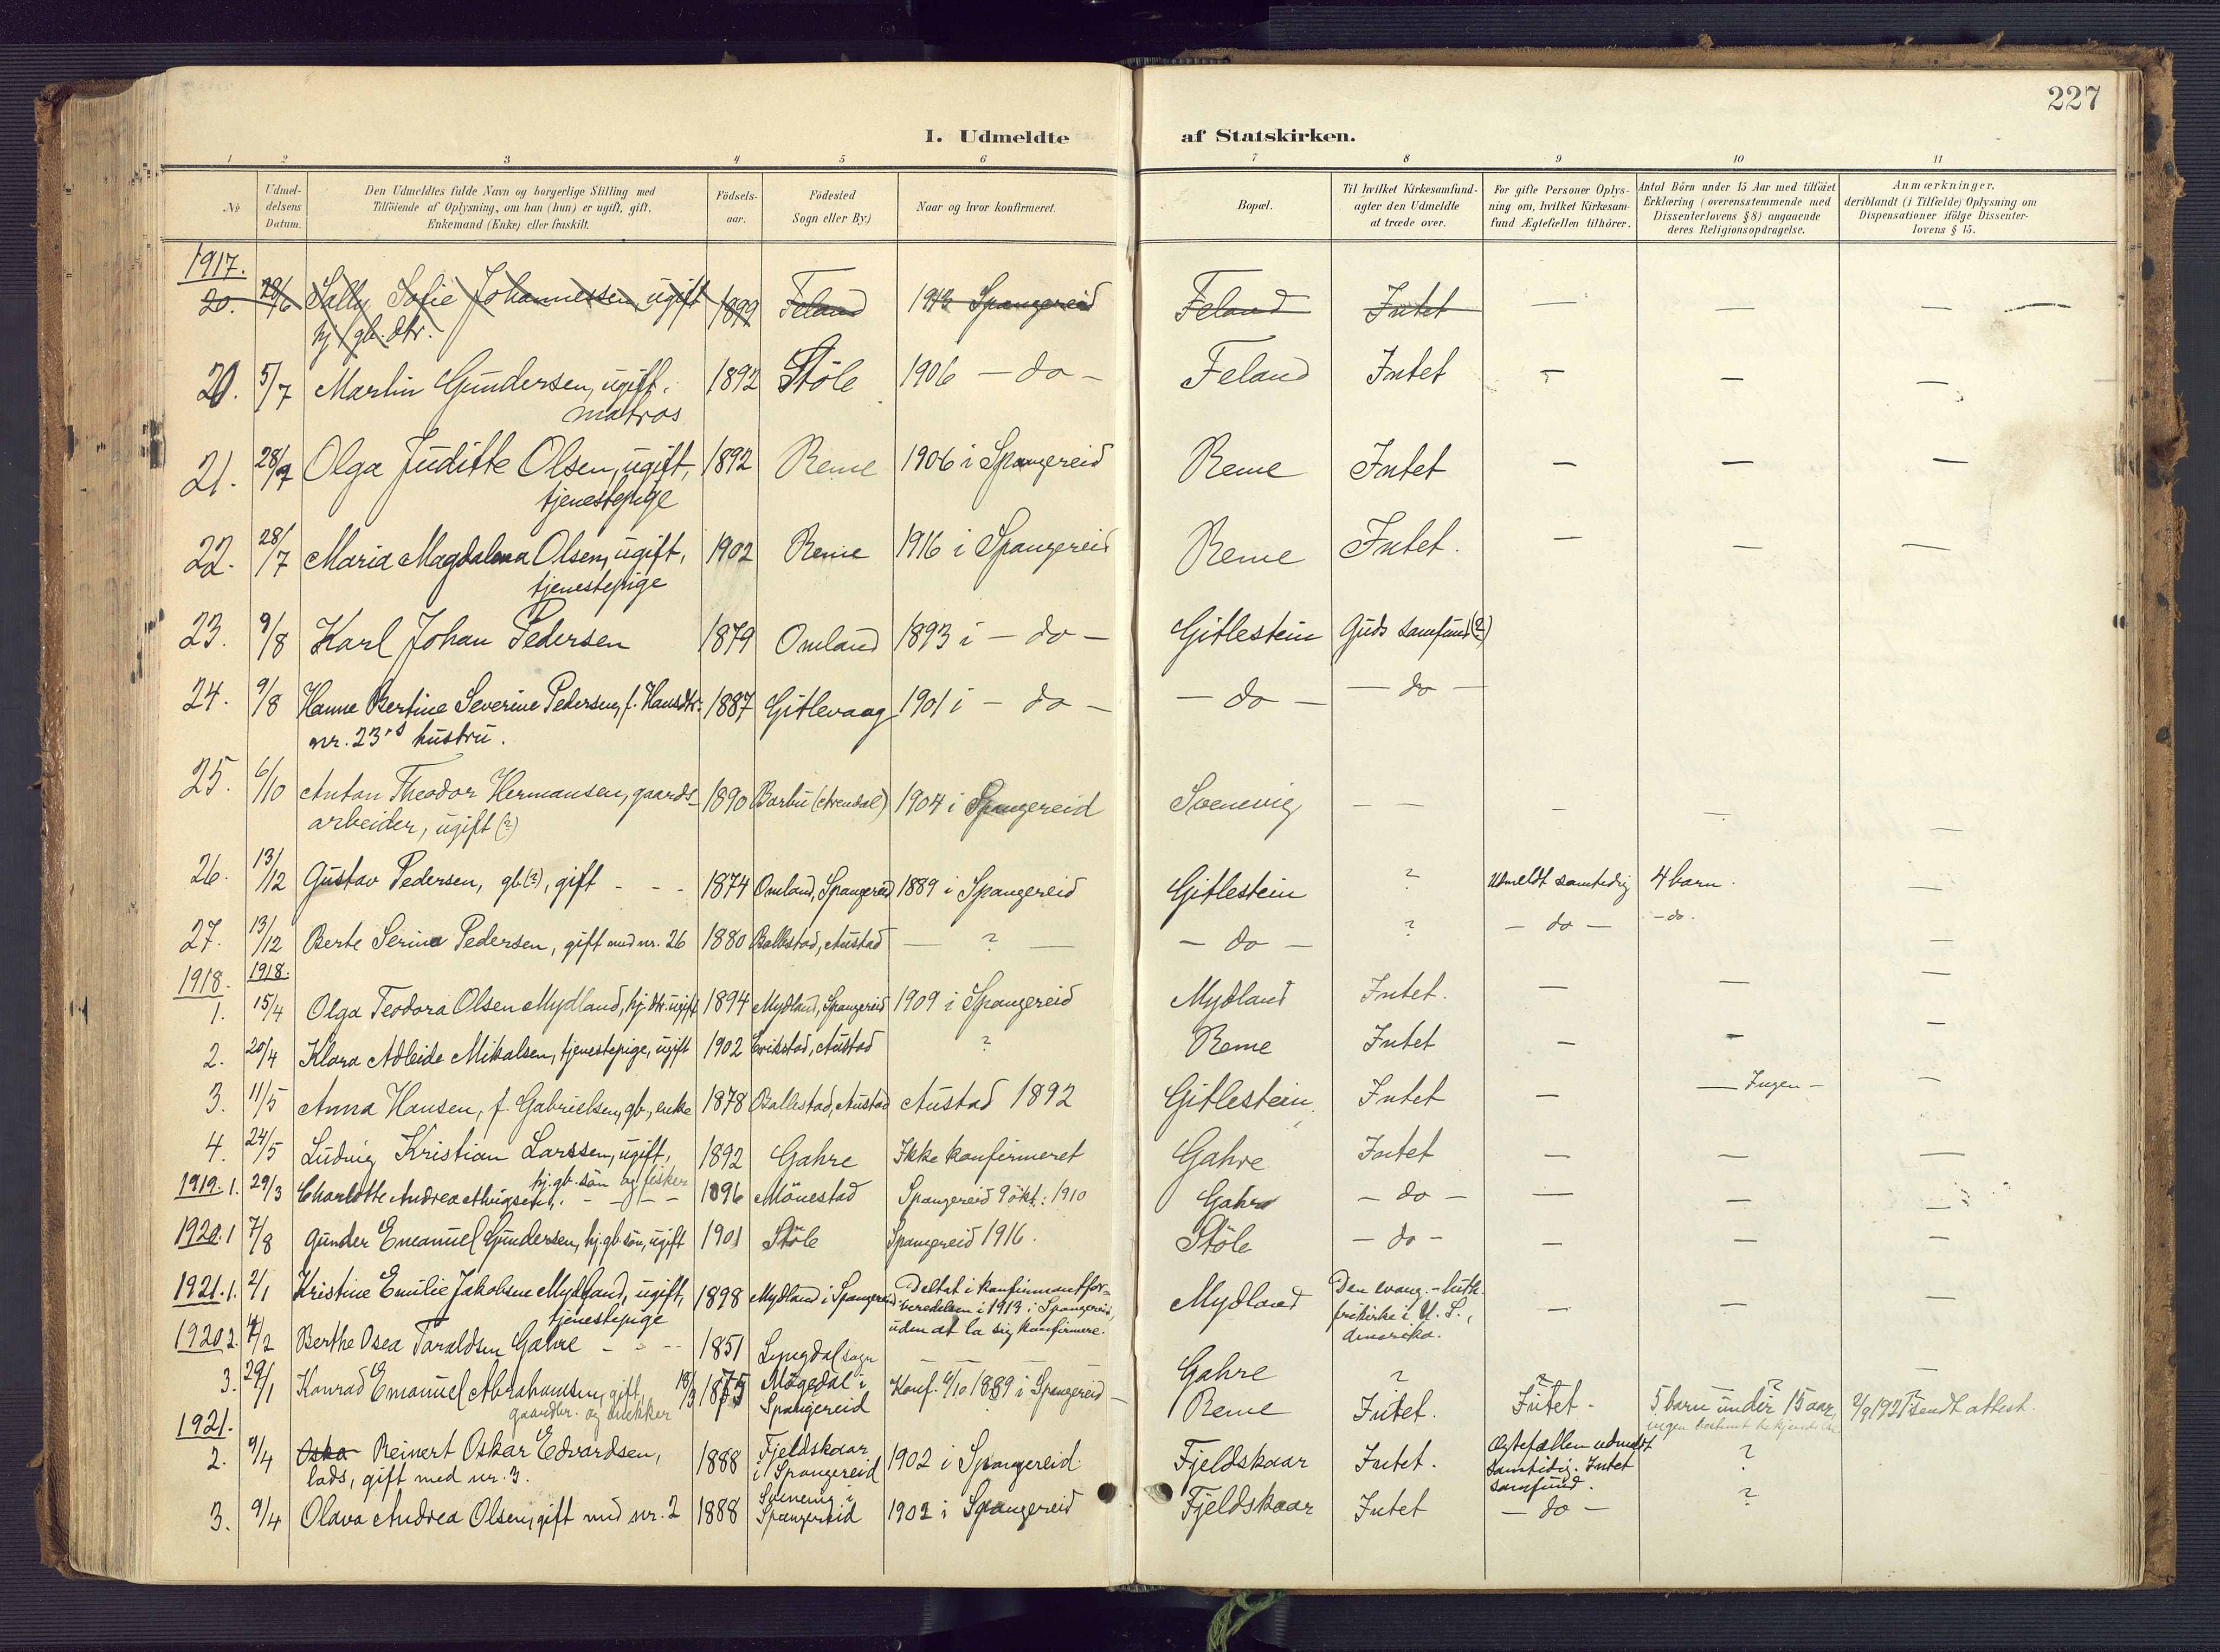 227
I. Udmeldte af Statskirken.
1 2 3 4 5 6 7 8 9 10 11
№
Udmeldelsens Datum.
Den Udmeldtes fulde Navn og borgerlige Stilling med
Tilföiende af Oplysning, om han (hun) er ugift, gift,
Enkemand (Enke) eller fraskilt.
Födselsaar.
Födested
Sogn eller By.)
Naar og hvor konfirmeret.
Bopæl.
Til hvilket Kirkesamfund agter den Udmeldte at træde over.
For gifte Personer Oplysning om, hvilket Kirkesamfund Ægtefællen tilhörer.
Antal Börn under 15 Aar med tilföiet Erklæring (overensstemmende med Dissenterlovens § 8) angaaende deres Religionsopdragelse.
Anmærkninger, deriblandt (i Tilfælde) Oplysning om Dispensationer ifölge Dissenterlovens § 15.
1917.
20. 28/6 Sally Sofie Johannessen, ugift 1899 Feland 1913 Spangereid Feland Intet — — —
hj. gb. dtr.
20. 5/7 Martin Gundersen, ugift, 1892 Støle 1906 — do — Feland Intet — — —
matros
21. 28/7 Olga Juditte Olsen, ugift, 1892 Reme 1906 i Spangereid Reme Intet — — —
tjenestepige
22. 28/7 Maria Magdalena Olsen, ugift, 1902 Reme 1916 i Spangereid Reme Intet. — — —
tjenestepige
23. 9/8 Karl Johan Pedersen 1879 Omland 1893 i — do — Gitlestein Guds samfund (?)
24. 9/8 Hanne Bertine Severine Pedersen, f. Hansdtr. 1887 Gitlevaag 1901 i — do — — do — — do —
nr. 23's hustru.
25. 6/10 Anton Theodor Hermansen, gaards- 1890 Barbu (Arendal) 1904 i Spangereid Svenevig — — — — —
arbeider, ugift (?)
26. 13/12 Gustav Pedersen, gb (?), gift - - - 1874 Omland, Spangereid 1889 i Spangereid Gitlestein ? Udmeldt samtidig 4 barn. —
27. 13/12 Berte Serine Pedersen, gift med nr. 26 1880 Ballestad, Austad — ? — — do — ? — do — — do. —
1918. 1918.
1. 15/4 Olga Teodora Olsen Mydland, hj. dtr. ugift 1894 Mydland, Spangereid 1909 i Spangereid Mydland Intet. — — —
2. 20/4 Klara Adleide Mikalsen, tjenestepige, ugift 1902 Erikstad, Austad ? Reme Intet — — —
3. 11/5 Anna Hansen, f. Gabrielsen, gb., enke 1878 Ballestad, Austad Austad 1892 Gitlestein Intet — — Ingen — —
4. 24/5 Ludvig Kristian Larssen, ugift, 1892 Gahre Ikke konfirmeret Gahre Intet — — —
hj. gb. søn og fisker
1919. 1. 29/3 Charlotte Andrea 1896 Mønestad Spangereid 9 okt: 1910 Gahre — do — — — —
1920. 1 7/8 Gunder Emanuel Gundersen, hj. gb. søn, ugift 1901 Støle Spangereid 1916. Støle — do — — — —
1921. 1. 2/1 Kristine Emilie Jakobsen Mydland, ugift, 1898 Mydland i Spangereid Deltat i konfirmantfor-
tjenestepige beredelsen i 1913 i Spangereid,
uden at la sig konfirmere. Mydland Den evang.-luth.
frikirke i U. S.,
Amerika. — — —
1920 2. Berthe Osea Taraldsen Gahre - - - 1851 Lyngdal sogn Gahre ? ? ? —
3. 29/1 Konrad Emanuel Abrahamsen, gift, 18/3 1875 Møgedal i Konf. 6/10 1889 i Spangereid — Reme Intet. Intet. 5 barn under 15 aar, 2/9 1921 sendt attest.
gaardbr. og snekker Spangereid ingen bestemt
1921.
2. 9/4 Oska Reinert Oskar Edvardsen, 1888 Fjeldskaar 1902 i Spangereid Fjeldskaar Intet. Ægtefællen udmeldt ?
lods, gift med nr. 3. i Spangereid samtidig. Intet
samfund.
3. 9/4 Olava Andrea Olsen, gift med nr. 2 1888 Svenevig i 1902 i Spangereid Fjeldskaar Intet — do — ?
Spangereid